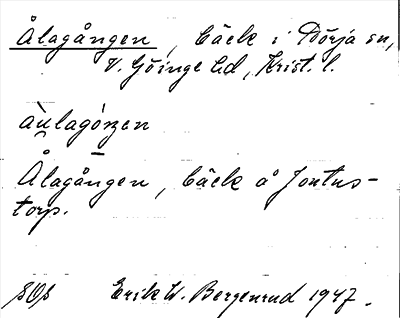 Ålagången, bäck i Dörja sn,
V. Göinge hd, Krist. l.
Ålagången, bäck å Jontus-
torp.
SOS Erik W. Bergenrud 1947.